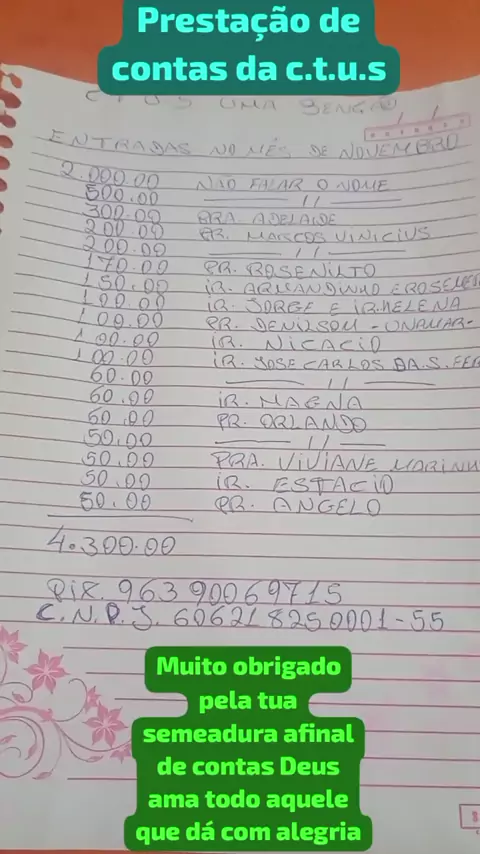 Prestação de
contas da c.t.u.s
C T U S UMA BENÇÃO
ENTRADAS NO MÊS DE NOVEMBRO
2.000.00 NÃO FALAR O NOME
500.00 ——— // ———
300.00 PRA. ADELAIDE
200.00 PR. MARCOS VINICIUS
200.00 ——— // ———
170.00 PR. ROSENILTO
150.00 IR. ARMANDINHO E
100.00 IR. JORGE E IR. HELENA
100.00 PR. DENILSON -
100.00 IR. NICACIO
100.00 IR. JOSE CARLOS DA. S.
60.00 ——— // ———
60.00 IR. MAGNA
60.00 PR. ORLANDO
50.00 ——— // ———
50.00 PRA. VIVIANE
50.00 IR. ESTACIO
50.00 PR. ANGELO
4.300.00
PIX. 96390069715
C.N.P.J. 606218250001-55
Muito obrigado
pela tua
semeadura afinal
de contas Deus
ama todo aquele
que dá com alegria